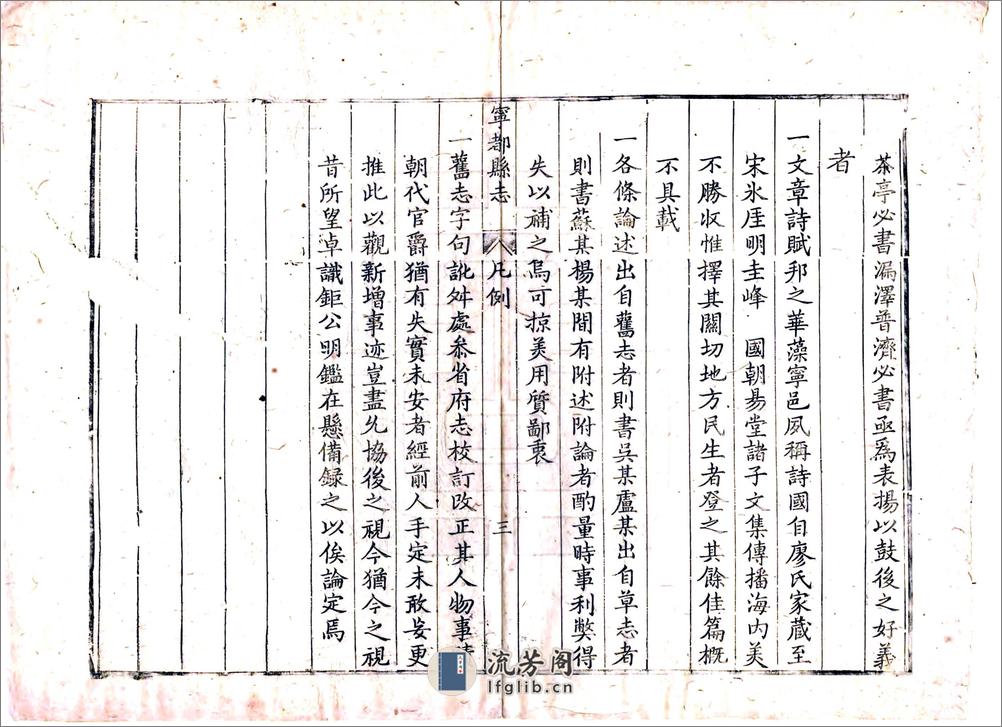 茶亭必書漏澤普濟必書亟爲表揚以鼓後之好義
者
一文章詩賦邦之華藻寧邑夙稱詩國自廖氏家藏至
宋氷厓明圭峰　國朝易堂諸子文集傳播海内美
不勝収惟擇其關切地方民生者登之其餘佳篇概
不具載
一各條論述出自舊志者則書吴某盧某出自草志者
則書蘇某楊某間有附述附論者酌量時事利獘得
失以補之烏可掠美用質鄙衷
寧都縣志　凡例　三
一舊志字句訛舛處叅省府志校訂改正其人物事
朝代官爵猶有失實未安者經前人手定未敢妄更
推此以觀新增事迹豈盡允協後之視今猶今之視
昔所望卓識鉅公明鑑在懸備録之以俟論定焉
流芳阁
lfglib.cn